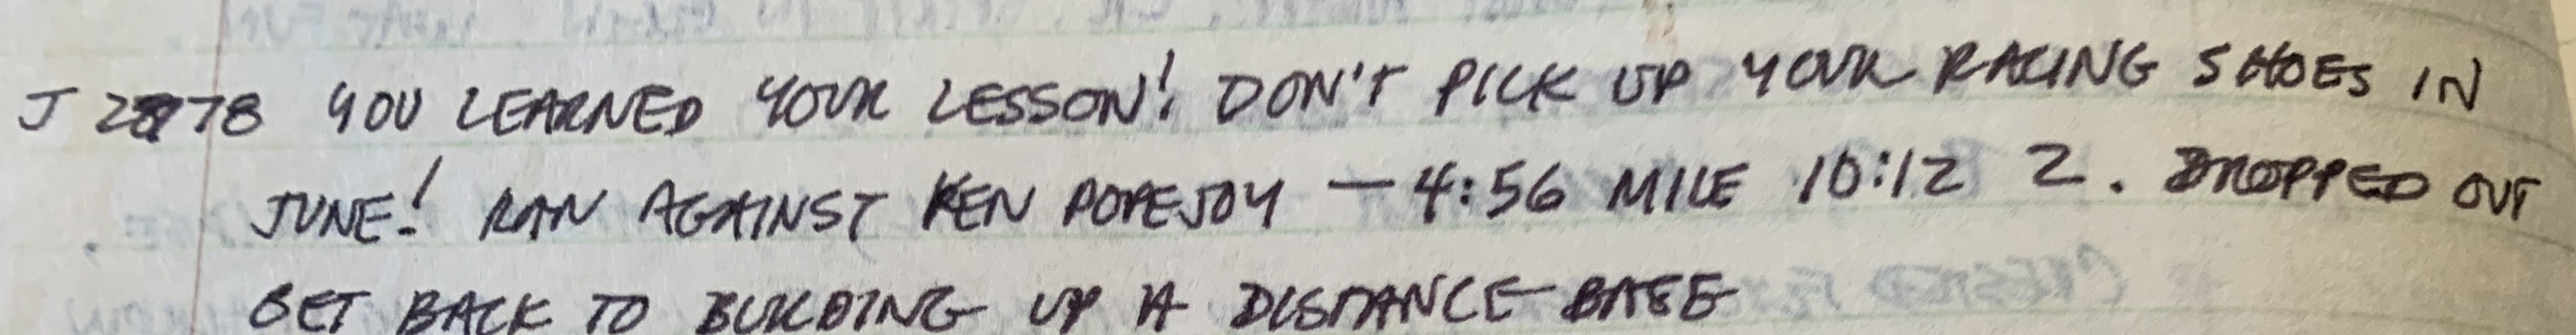 J 2878 YOU LEARNED YOUR LESSON! DON'T PICK UP YOUR RACING SHOES IN
JUNE! RAN AGAINST KEN POPEJOY — 4:56 MILE 10:12 2. DROPPED OUT
GET BACK TO BUILDING UP A DISTANCE BASE